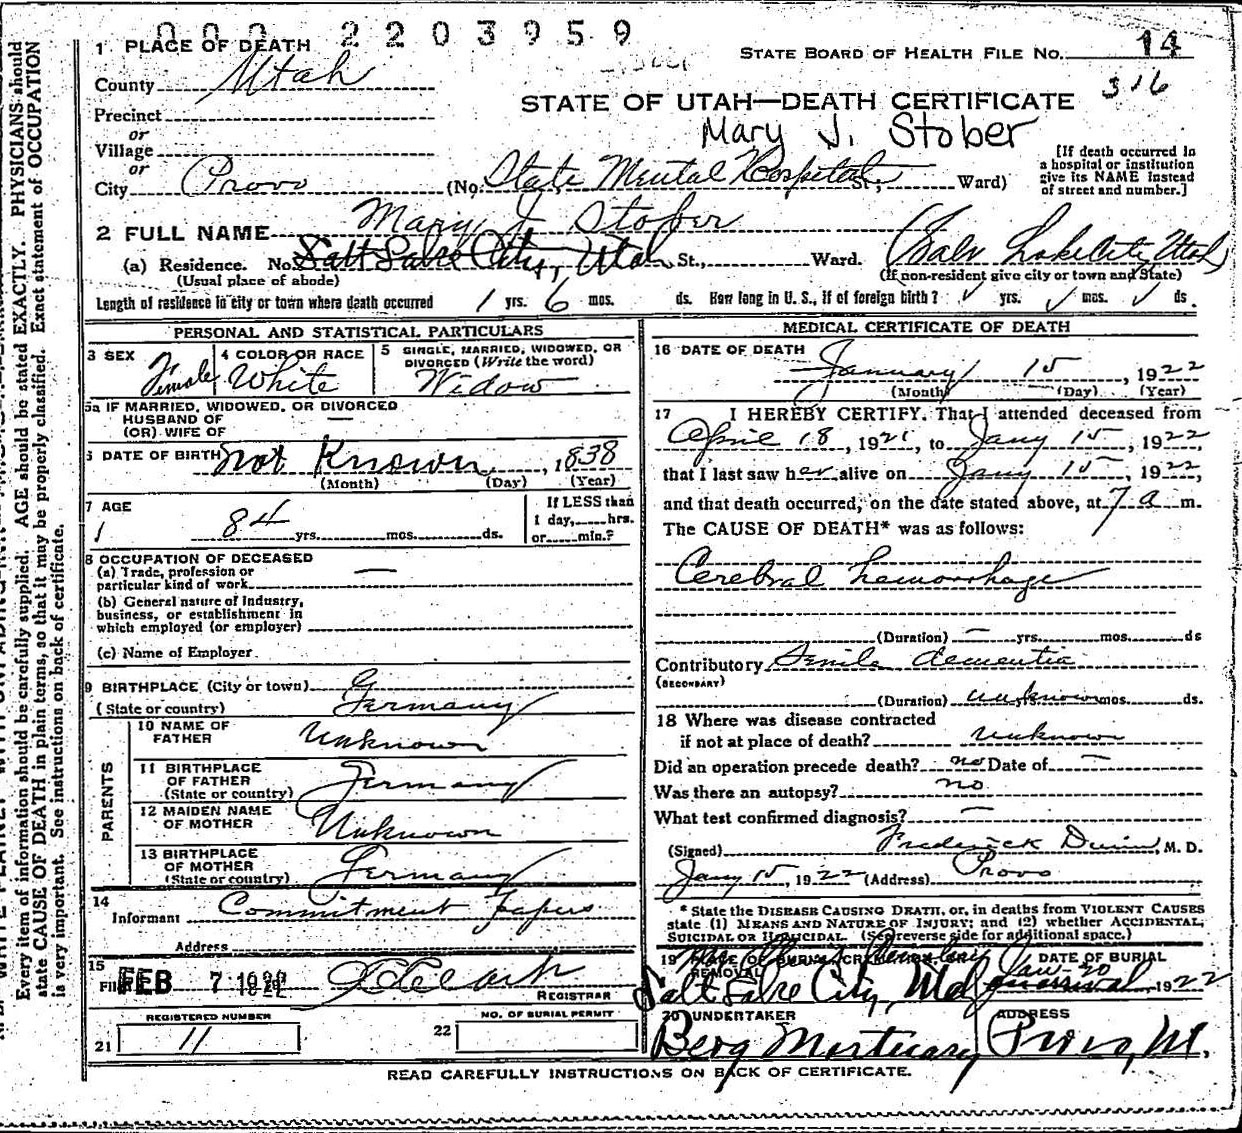 000 2203959
1 PLACE OF DEATH
STATE BOARD OF HEALTH FILE No. 14
County Utah
316
STATE OF UTAH—DEATH CERTIFICATE
Precinct
or
Mary J. Stober
Village
or
[If death occurred in
a hospital or institution
give its NAME instead
of street and number.]
City Provo (No. State Mental Hospital St.; Ward)
2 FULL NAME Mary J Stober
(a) Residence. No. Salt Lake City, Utah St., Ward. (Salt Lake City Utah
(Usual place of abode) (If non-resident give city or town and State)
Length of residence in city or town where death occurred 1 yrs. 6 mos. ds. How long in U. S., if of foreign birth? yrs. mos. ds.
PERSONAL AND STATISTICAL PARTICULARS
3 SEX Female
4 COLOR OR RACE White
5 SINGLE, MARRIED, WIDOWED, OR
DIVORCED (Write the word)
Widow
5a IF MARRIED, WIDOWED, OR DIVORCED
HUSBAND OF
(OR) WIFE OF —
6 DATE OF BIRTH not Known, 1838
(Month) (Day) (Year)
7 AGE
84 yrs. mos. ds.
If LESS than
1 day, hrs.
or min.?
8 OCCUPATION OF DECEASED
(a) Trade, profession or
particular kind of work —
(b) General nature of Industry,
business, or establishment in
which employed (or employer)
(c) Name of Employer
9 BIRTHPLACE (City or town)
(State or country) Germany
PARENTS
10 NAME OF
FATHER Unknown
11 BIRTHPLACE
OF FATHER
(State or country) Germany
12 MAIDEN NAME
OF MOTHER Unknown
13 BIRTHPLACE
OF MOTHER
(State or country) Germany
14
Informant Commitment Papers
Address
15
Filed FEB 7 1922
REGISTRAR
REGISTERED NUMBER
21 11
NO. OF BURIAL PERMIT
22
MEDICAL CERTIFICATE OF DEATH
16 DATE OF DEATH
January 15, 1922
(Month) (Day) (Year)
17 I HEREBY CERTIFY. That I attended deceased from
April 18, 1921, to Jany 15, 1922
that I last saw her alive on Jany 15, 1922,
and that death occurred, on the date stated above, at 7 a m.
The CAUSE OF DEATH* was as follows:
Cerebral hemorrhage
(Duration) — yrs. mos. ds
Contributory Senile dementia
(SECONDARY)
(Duration) unknown yrs. mos. ds.
18 Where was disease contracted
if not at place of death? unknown
Did an operation precede death? no Date of —
Was there an autopsy? no
What test confirmed diagnosis? —
(Signed) Frederick Dunn, M. D.
Jany 15, 1922 (Address) Provo
* State the DISEASE CAUSING DEATH, or, in deaths from VIOLENT CAUSES
state (1) MEANS AND NATURE OF INJURY; and (2) whether ACCIDENTAL,
SUICIDAL OR HOMICIDAL. (See reverse side for additional space.)
19 PLACE OF BURIAL, CREMATION, OR
REMOVAL
Salt Lake City,
DATE OF BURIAL
Jan-20 1922
20 UNDERTAKER
Berg Mortuary
ADDRESS
Provo, Ut.
READ CAREFULLY INSTRUCTIONS ON BACK OF CERTIFICATE.
Every item of information should be carefully supplied. AGE should be stated EXACTLY. PHYSICIANS should
state CAUSE OF DEATH in plain terms, so that it may be properly classified. Exact statement of OCCUPATION
is very important. See instructions on back of certificate.